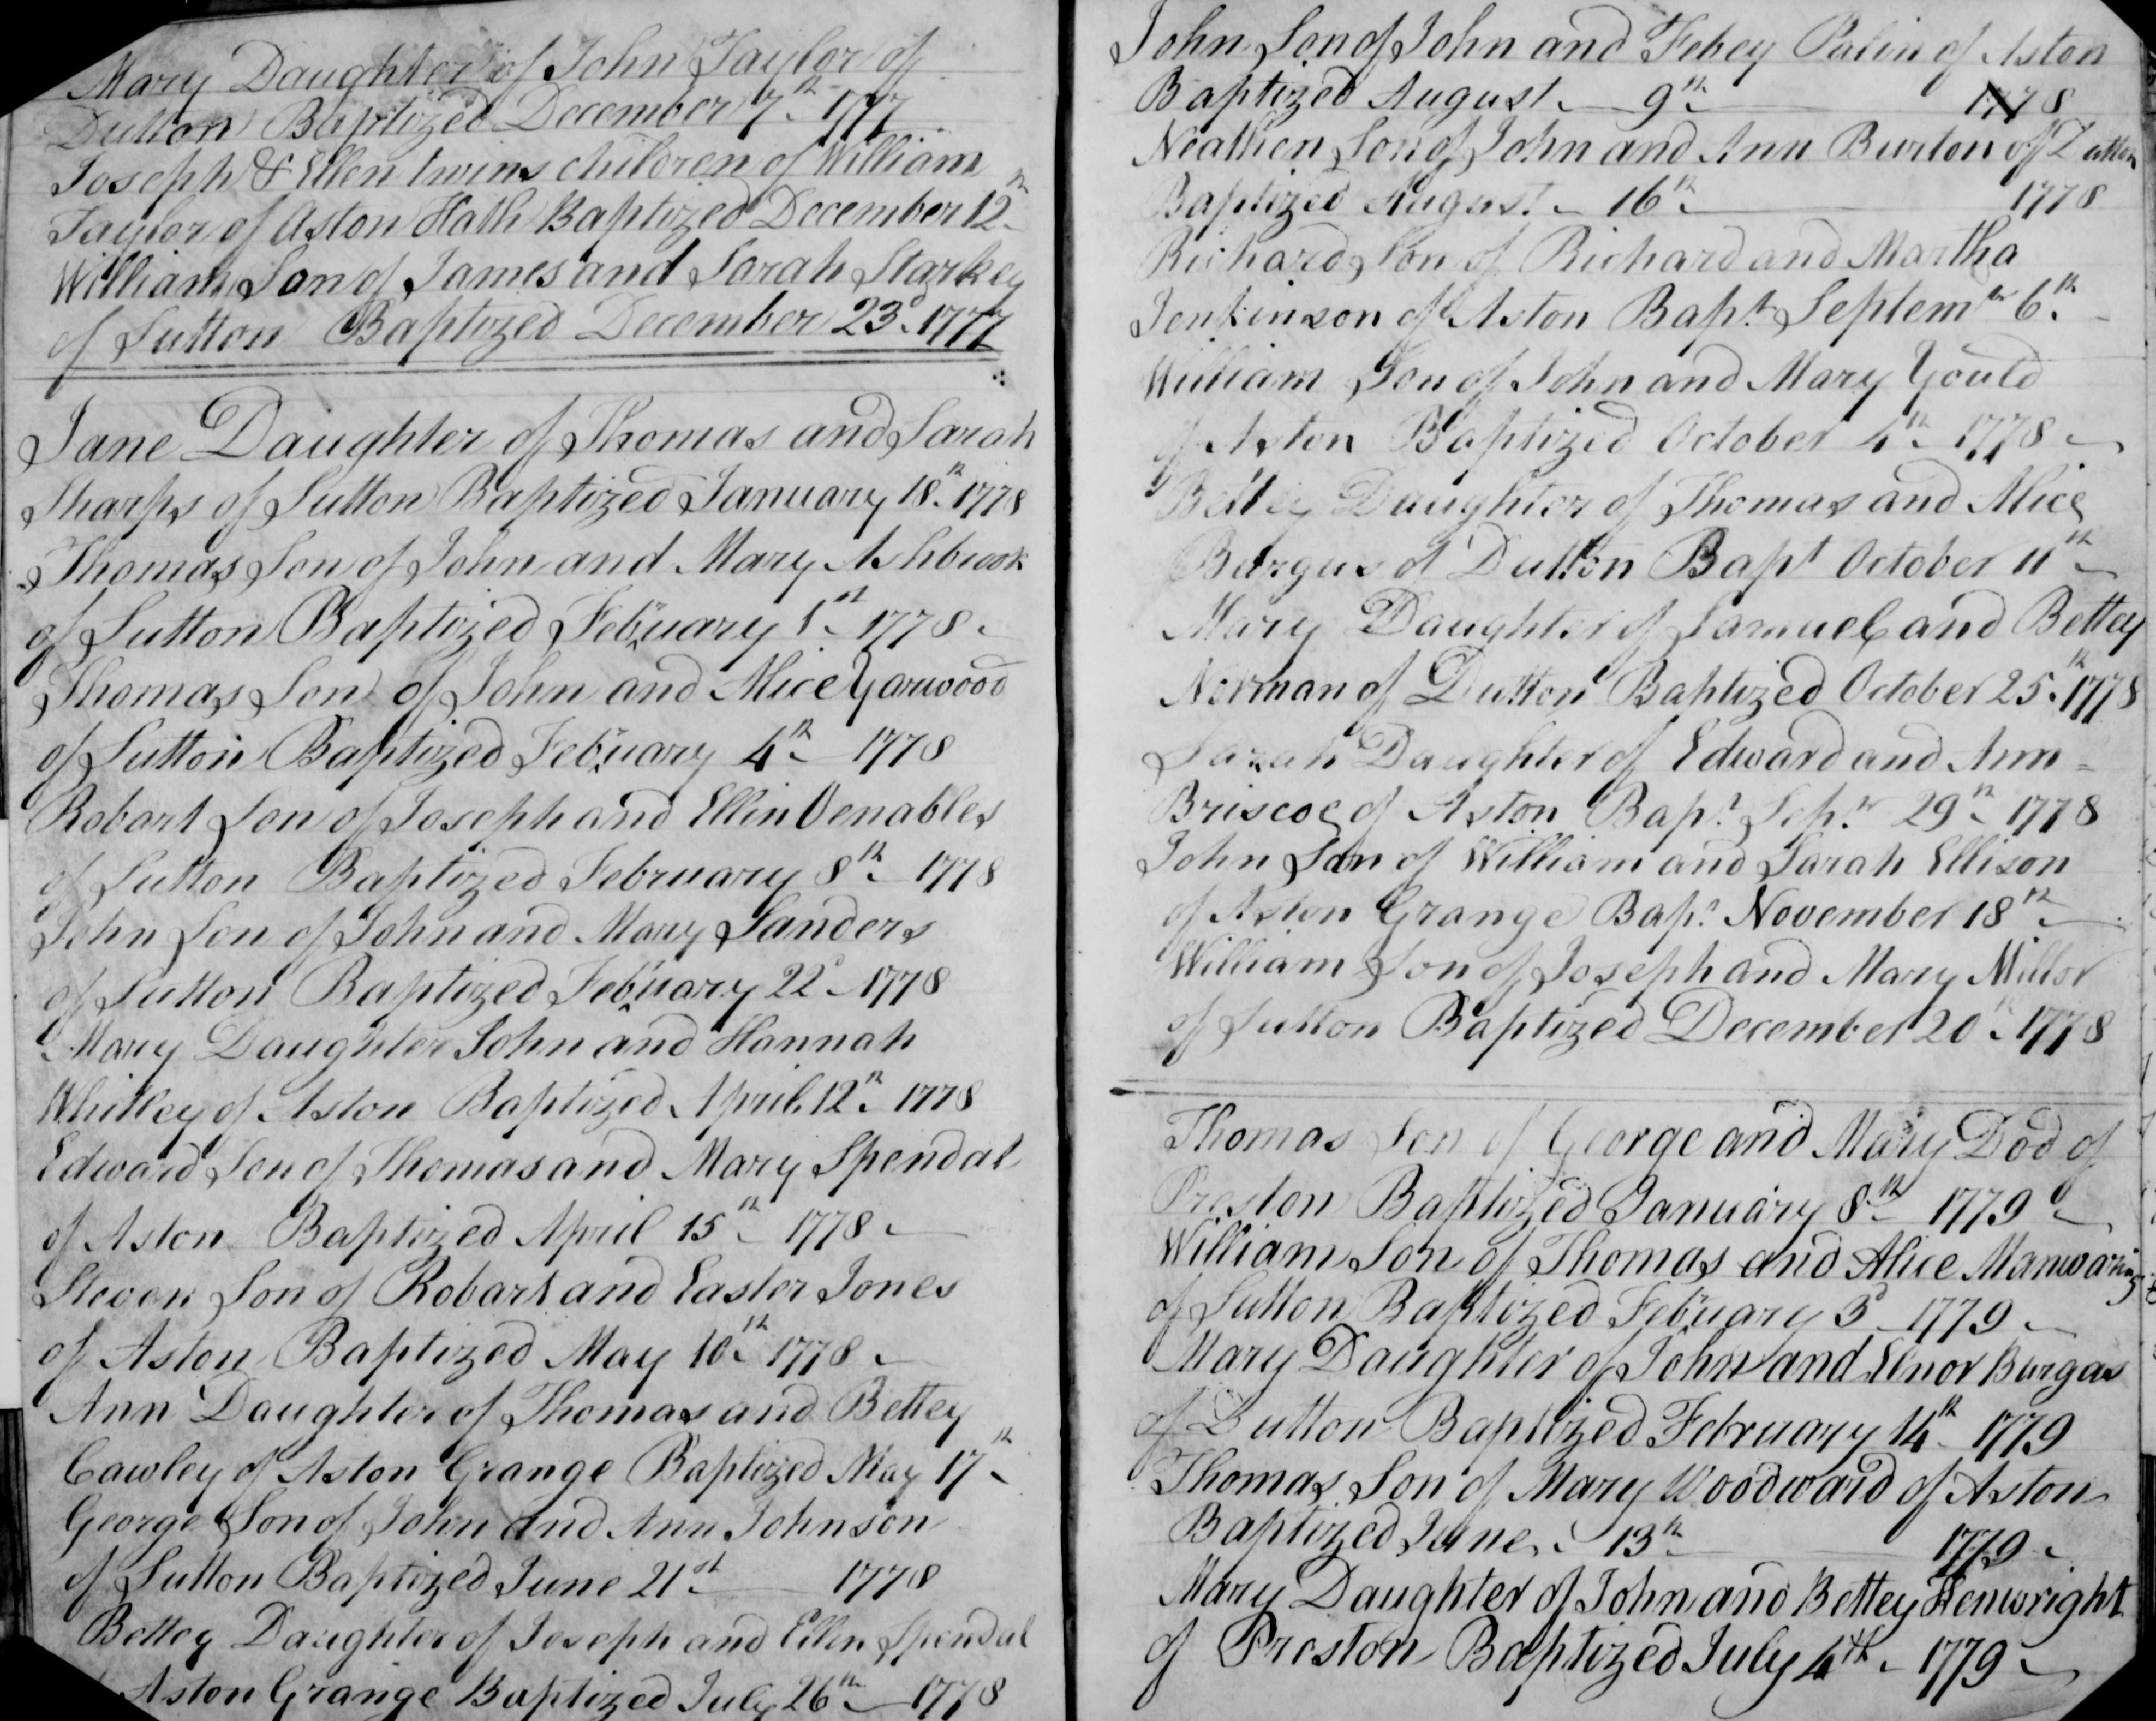 Mary Daughter of John Taylor of
Dutton Baptized December 7th 1777
Joseph & Ellen twins children of William
Taylor of Aston Hath Baptized December 12th
William Son of James and Sarah Starkey
of Sutton Baptized December 23d 1777
Jane Daughter of Thomas and Sarah
Sharps of Sutton Baptized January 18th 1778
Thomas Son of John and Mary Ashbrook
of Sutton Baptized February 1st 1778
Thomas Son of John and Alice Yarwood
of Sutton Baptized February 4th 1778
Robart Son of Joseph and Ellin Venables
of Sutton Baptized February 8th 1778
John Son of John and Mary Sanders
of Sutton Baptized February 22d 1778
Mary Daughter John and Hannah
Whitley of Aston Baptized April 12th 1778
Edward Son of Thomas and Mary Spendal
of Aston Baptized April 15th 1778
Steven Son of Robart and Easter Jones
of Aston Baptized May 10th 1778
Ann Daughter of Thomas and Bettey
Cawley of Aston Grange Baptized May 17th
George Son of John and Ann Johnson
of Sutton Baptized June 21st 1778
Bettey Daughter of Joseph and Ellen Spendal
Aston Grange Baptized July 26th 1778
John Son of John and Febey Palin of Aston
Baptized August 9th 1778
Neathen Son of John and Ann Burton of Dutton
Baptized August 16th 1778
Richard Son of Richard and Martha
Jenkinson of Aston Bapt Septemr 6th
William Son of John and Mary Gould
of Aston Baptized October 4th 1778
Bettey Daughter of Thomas and Alice
Burgus of Dutton Bapt October 11th
Mary Daughter of Samuel and Bettey
Norman of Dutton Baptized October 25th 1778
Sarah Daughter of Edward and Ann
Briscoe of Aston Bapt Sepr 29th 1778
John Son of William and Sarah Ellison
of Aston Grange Bapt November 18th
William Son of Joseph and Mary Millor
of Sutton Baptized December 20th 1778
Thomas Son of George and Mary Dod of
Preston Baptized January 8th 1779
William Son of Thomas and Alice Manwaring
of Sutton Baptized Februrary 3d 1779
Mary Daughter of John and Elnor Burgas
of Dutton Baptized February 14th 1779
Thomas Son of Mary Woodward of Aston
Baptized June 13th 1779
Mary Daughter of John and Bettey Kenwright
of Preston Baptized July 4th 1779